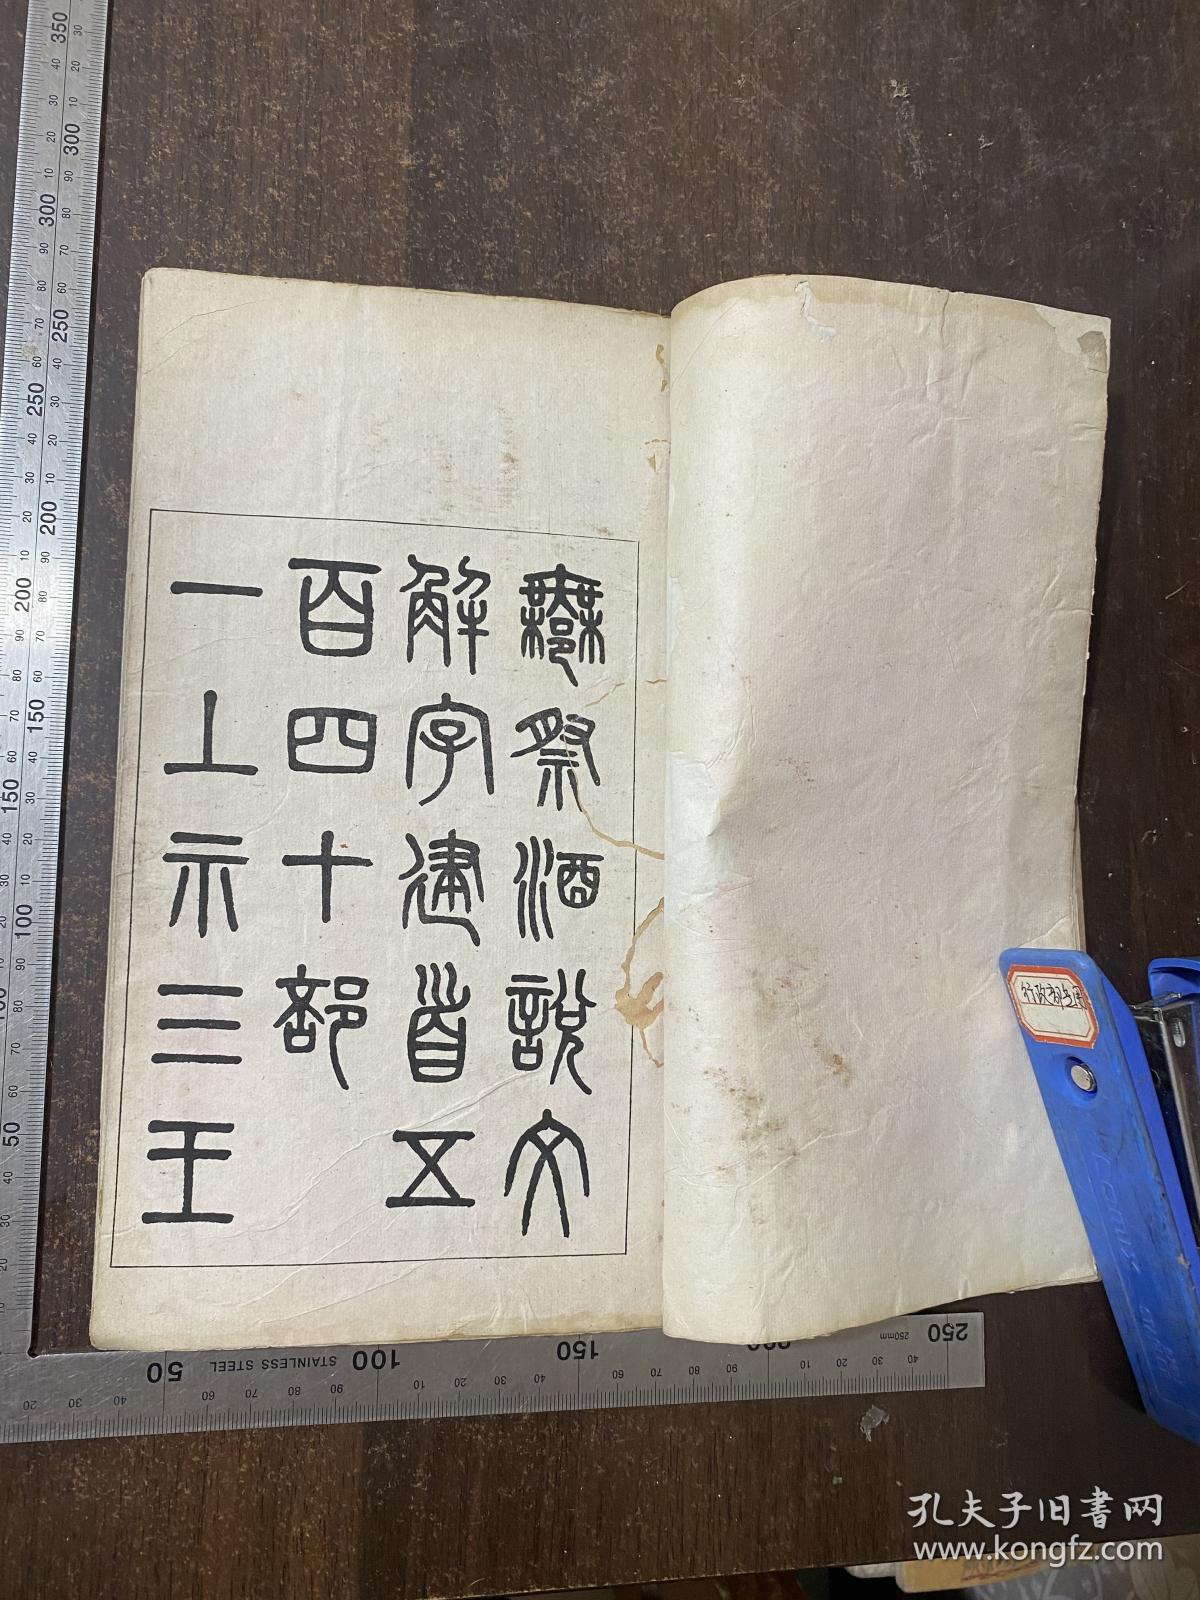 鄦祭酒說文
解字建首五
百四十部
一丄示三王
STAINLESS STEEL
50
100
150
250
250mm
350
300
250
200
150
100
50
孔夫子旧書网
www.kongfz.com